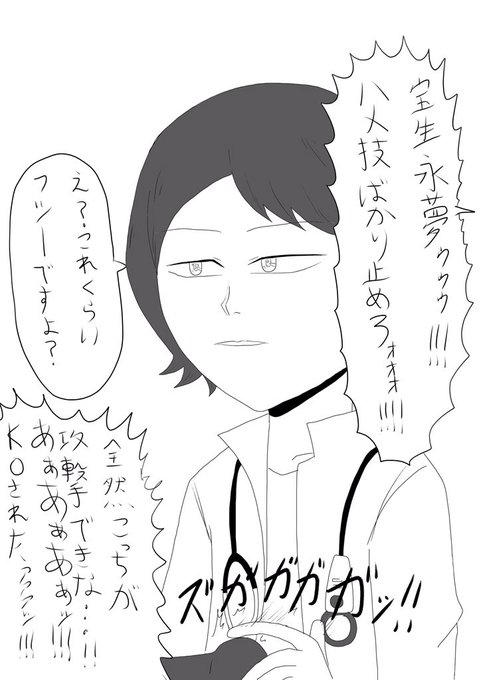 宝生永夢ゥゥゥ!!!
ハメ技ばかり止めろォォォ!!!!
え?これくらい
フツーですよ?
全然、こっちが
攻撃手できな…。!!
あぁあぁあぁッ!!
KOされたァァァッ!!!
ズガガガガンッ!!